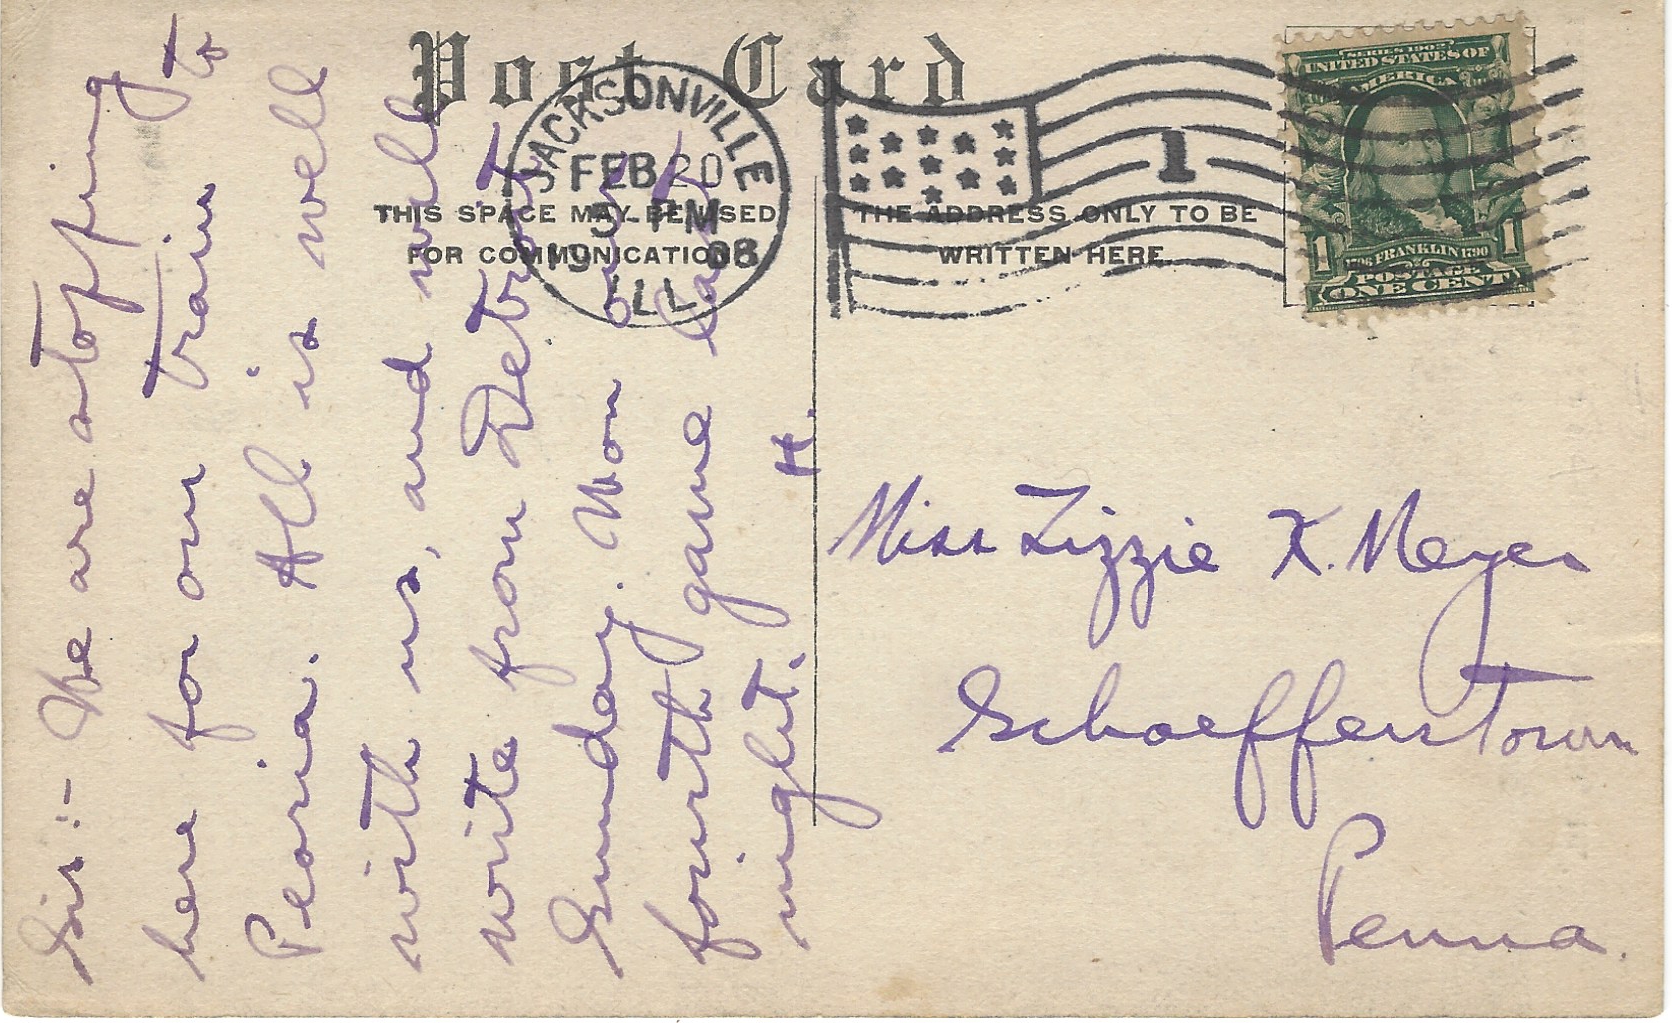 Post Card
THIS SPACE MAY BE USED
FOR COMMUNICATION
THE ADDRESS ONLY TO BE
WRITTEN HERE
JACKSONVILLE
FEB 20
5-PM
1908
ILL
1
SERIES 1902
UNITED STATES OF
AMERICA
1 FRANKLIN 1790 1
POSTAGE
ONE CENT
Sis:- We are stopping
here for our train to
Peoria. All is well
with us, and will
write from Detroit
Sunday. Won our
fourth game last
night. H.
Miss Lizzie K. Meyer
Schaefferstown
Penna.